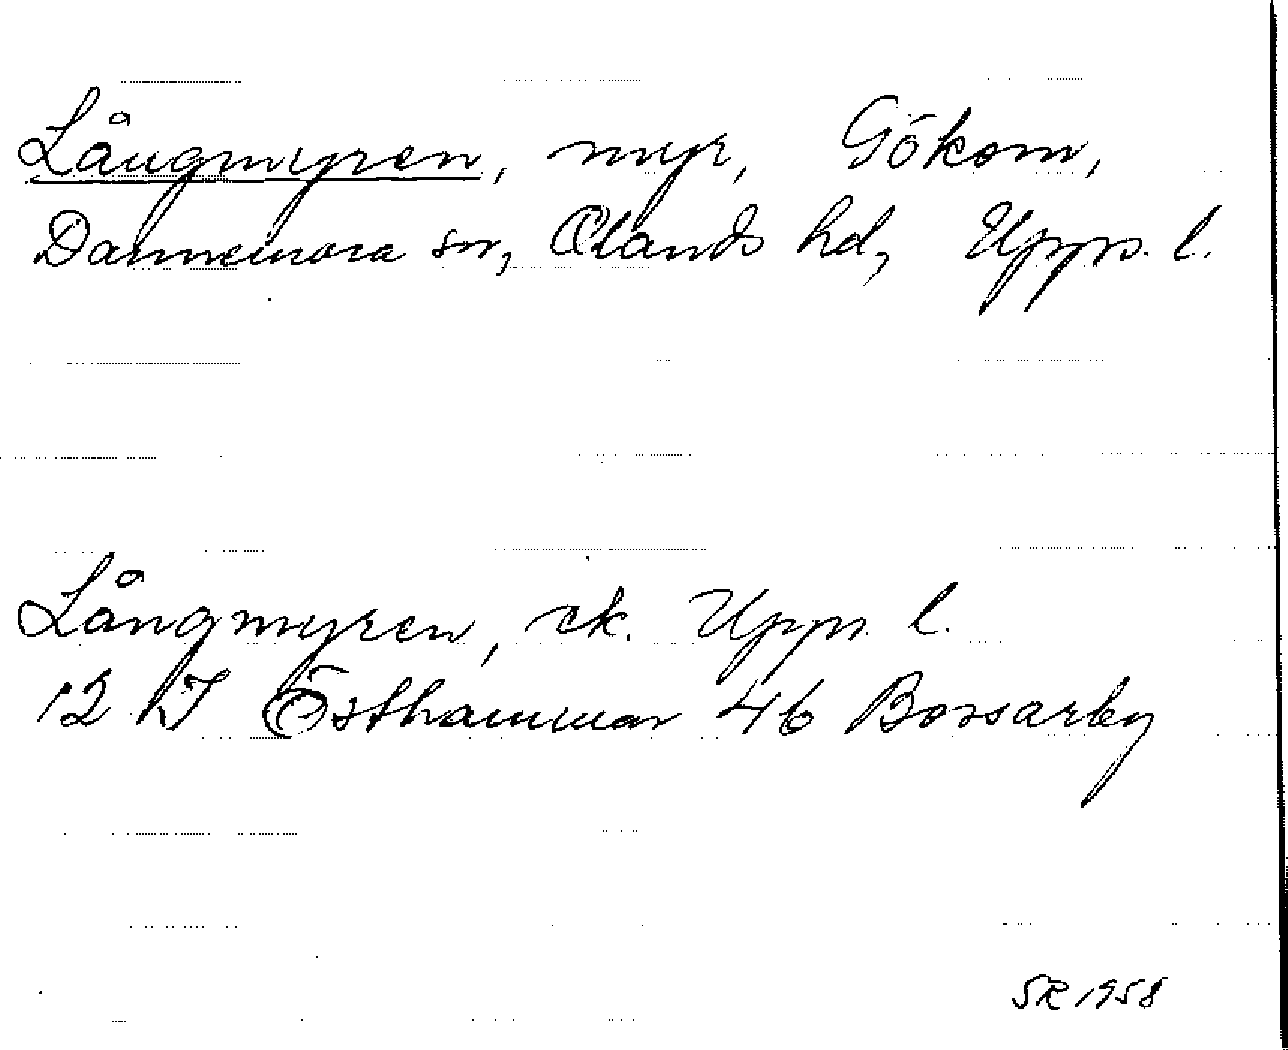 Långmyren, myr, Gökom,
Dannemora sn, Olands hd, Upps. l.
Långmyren, ek. Upps. l.
12 I Östhammar 4b Bossarby
SR 1958